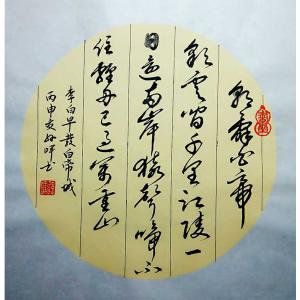 朝辭白帝
彩雲間千里江陵一
日還兩岸猿聲啼不
住輕舟已過萬重山
李白早發白帝城
丙申